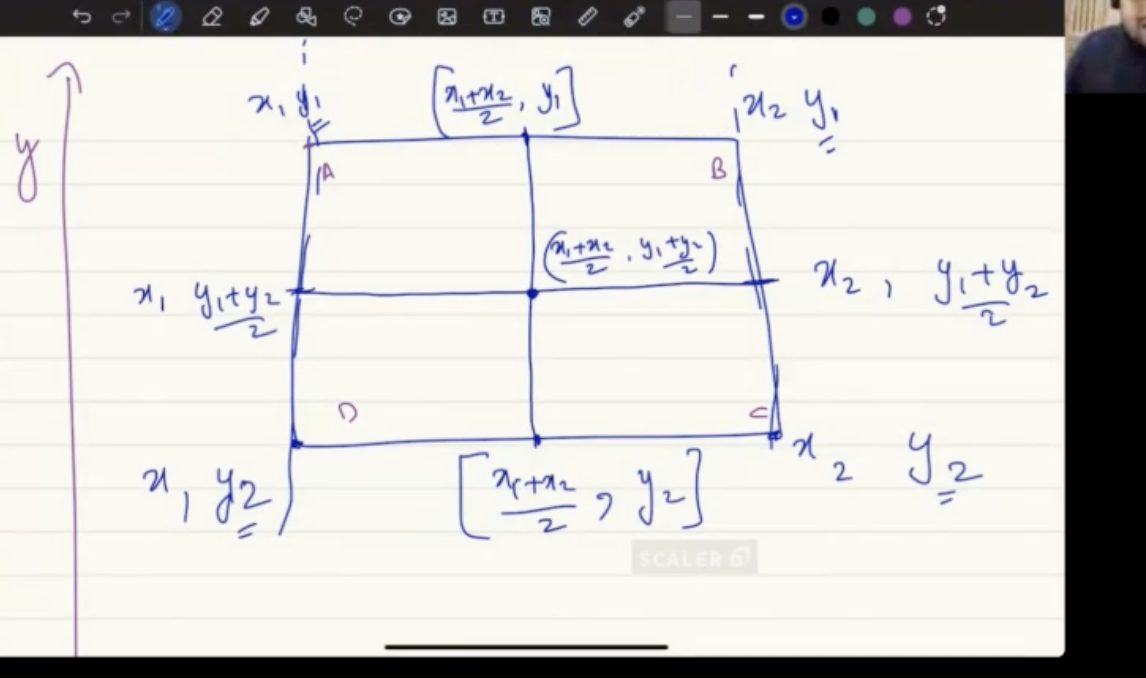 x₁ y₁ [(x₁+x₂)/2, y₁] x₂ y₁
y
A B
((x₁+x₂)/2, (y₁+y₂)/2)
x₁ (y₁+y₂)/2 x₂, (y₁+y₂)/2
D C
x₁ y₂ [(x₁+x₂)/2, y₂] x₂ y₂
SCALER